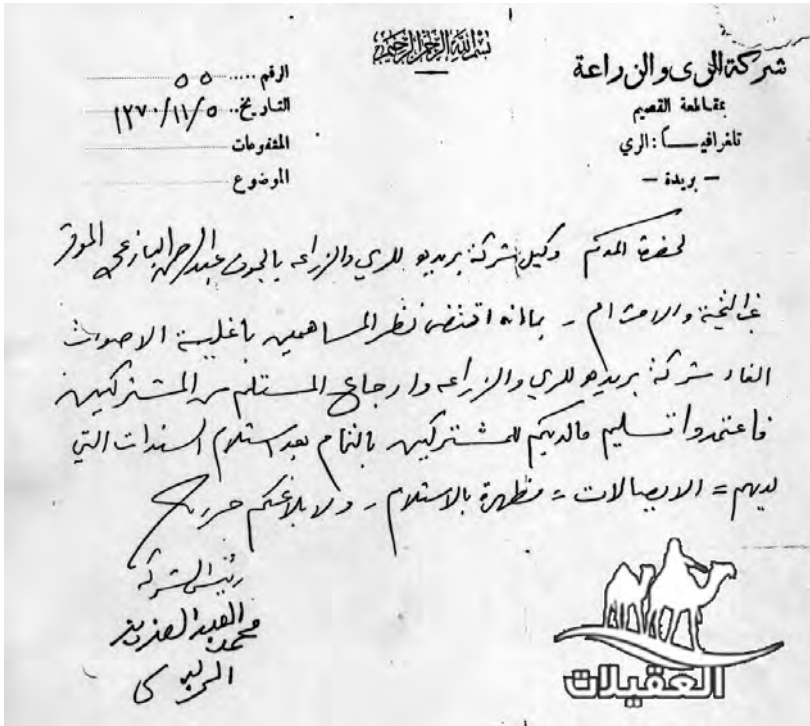 بسم الله الرحمن الرحيم
شركة الري والزراعة
بمقاطعة القصيم
تلغرافيـــاً : الري
– بريدة –
الرقم ..... ٥٥
التاريخ .. ١٣٧٠/١١/٥
المشفوعات
الموضوع
لحضرة المكرم وكيل شركة بريده للري والزراعه بالجوف عبدالرحمن البازعي الموقر
غب التحية والاحترام - بما انه اقتضى نظر المساهمين باغلبية الاصوات
الغاء شركة بريده للري والزراعه وارجاع المستلم من المشتركين
فاعتمدوا تسليم مالديكم للمشتركين بالتمام بعد استلام السندات التي
لديهم = الايصالات = مظهرة بالاستلام - ولابلاغكم حرر
رئيس الشركة
محمد العبدالعزيز
الربدي
العقيلات